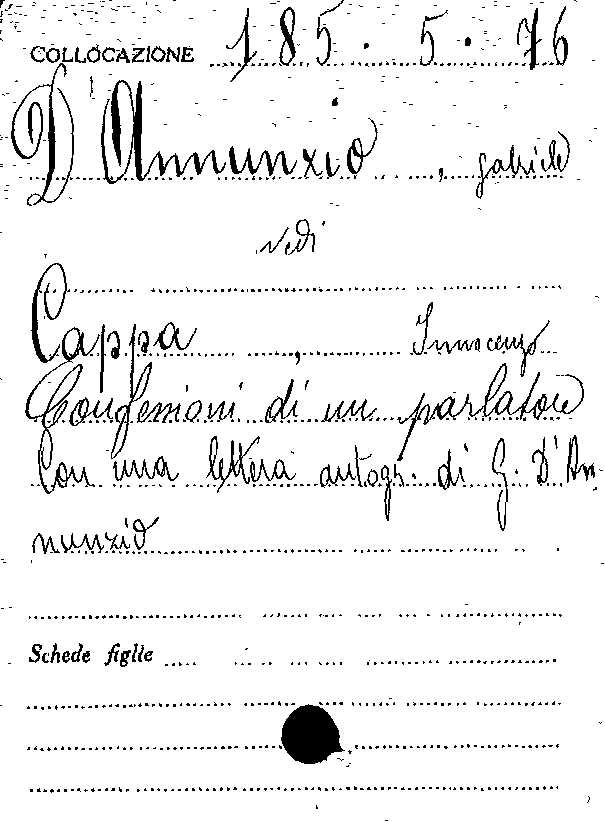 COLLOCAZIONE 185.5.76
D'Annunzio, Gabriele
vedi
Cappa, Innocenzo
Confessioni di un parlatore
Con una lettera autogr. di G. D'An-
nunzio
Schede figlie